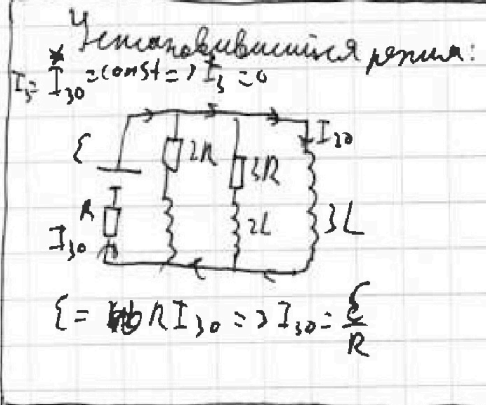 Установившийся режим:
I₃ = I₃₀ = const => İ₃ = 0
I₃₀
ε
2R
3R
R
I₃₀
2L
3L
ε = RI₃₀ => I₃₀ = ε/R